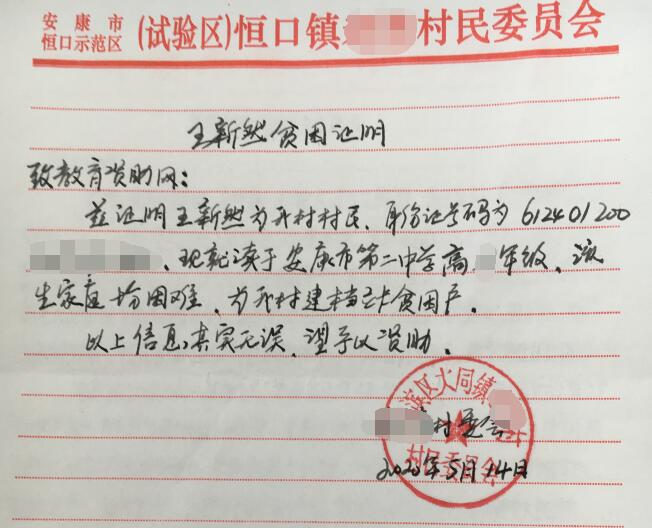 安康市
恒口示范区
(试验区)恒口镇 村民委员会
王新然贫困证明
致教育资助网:
兹证明王新然为我村村民、身份证号码为612401200
、现就读于安康市第二中学高 年级、该
生家庭 困难、为我村建档立卡贫困户。
以上信息真实无误、望予以资助。
滨区大同镇
村委会
村民委员会
2020年5月14日